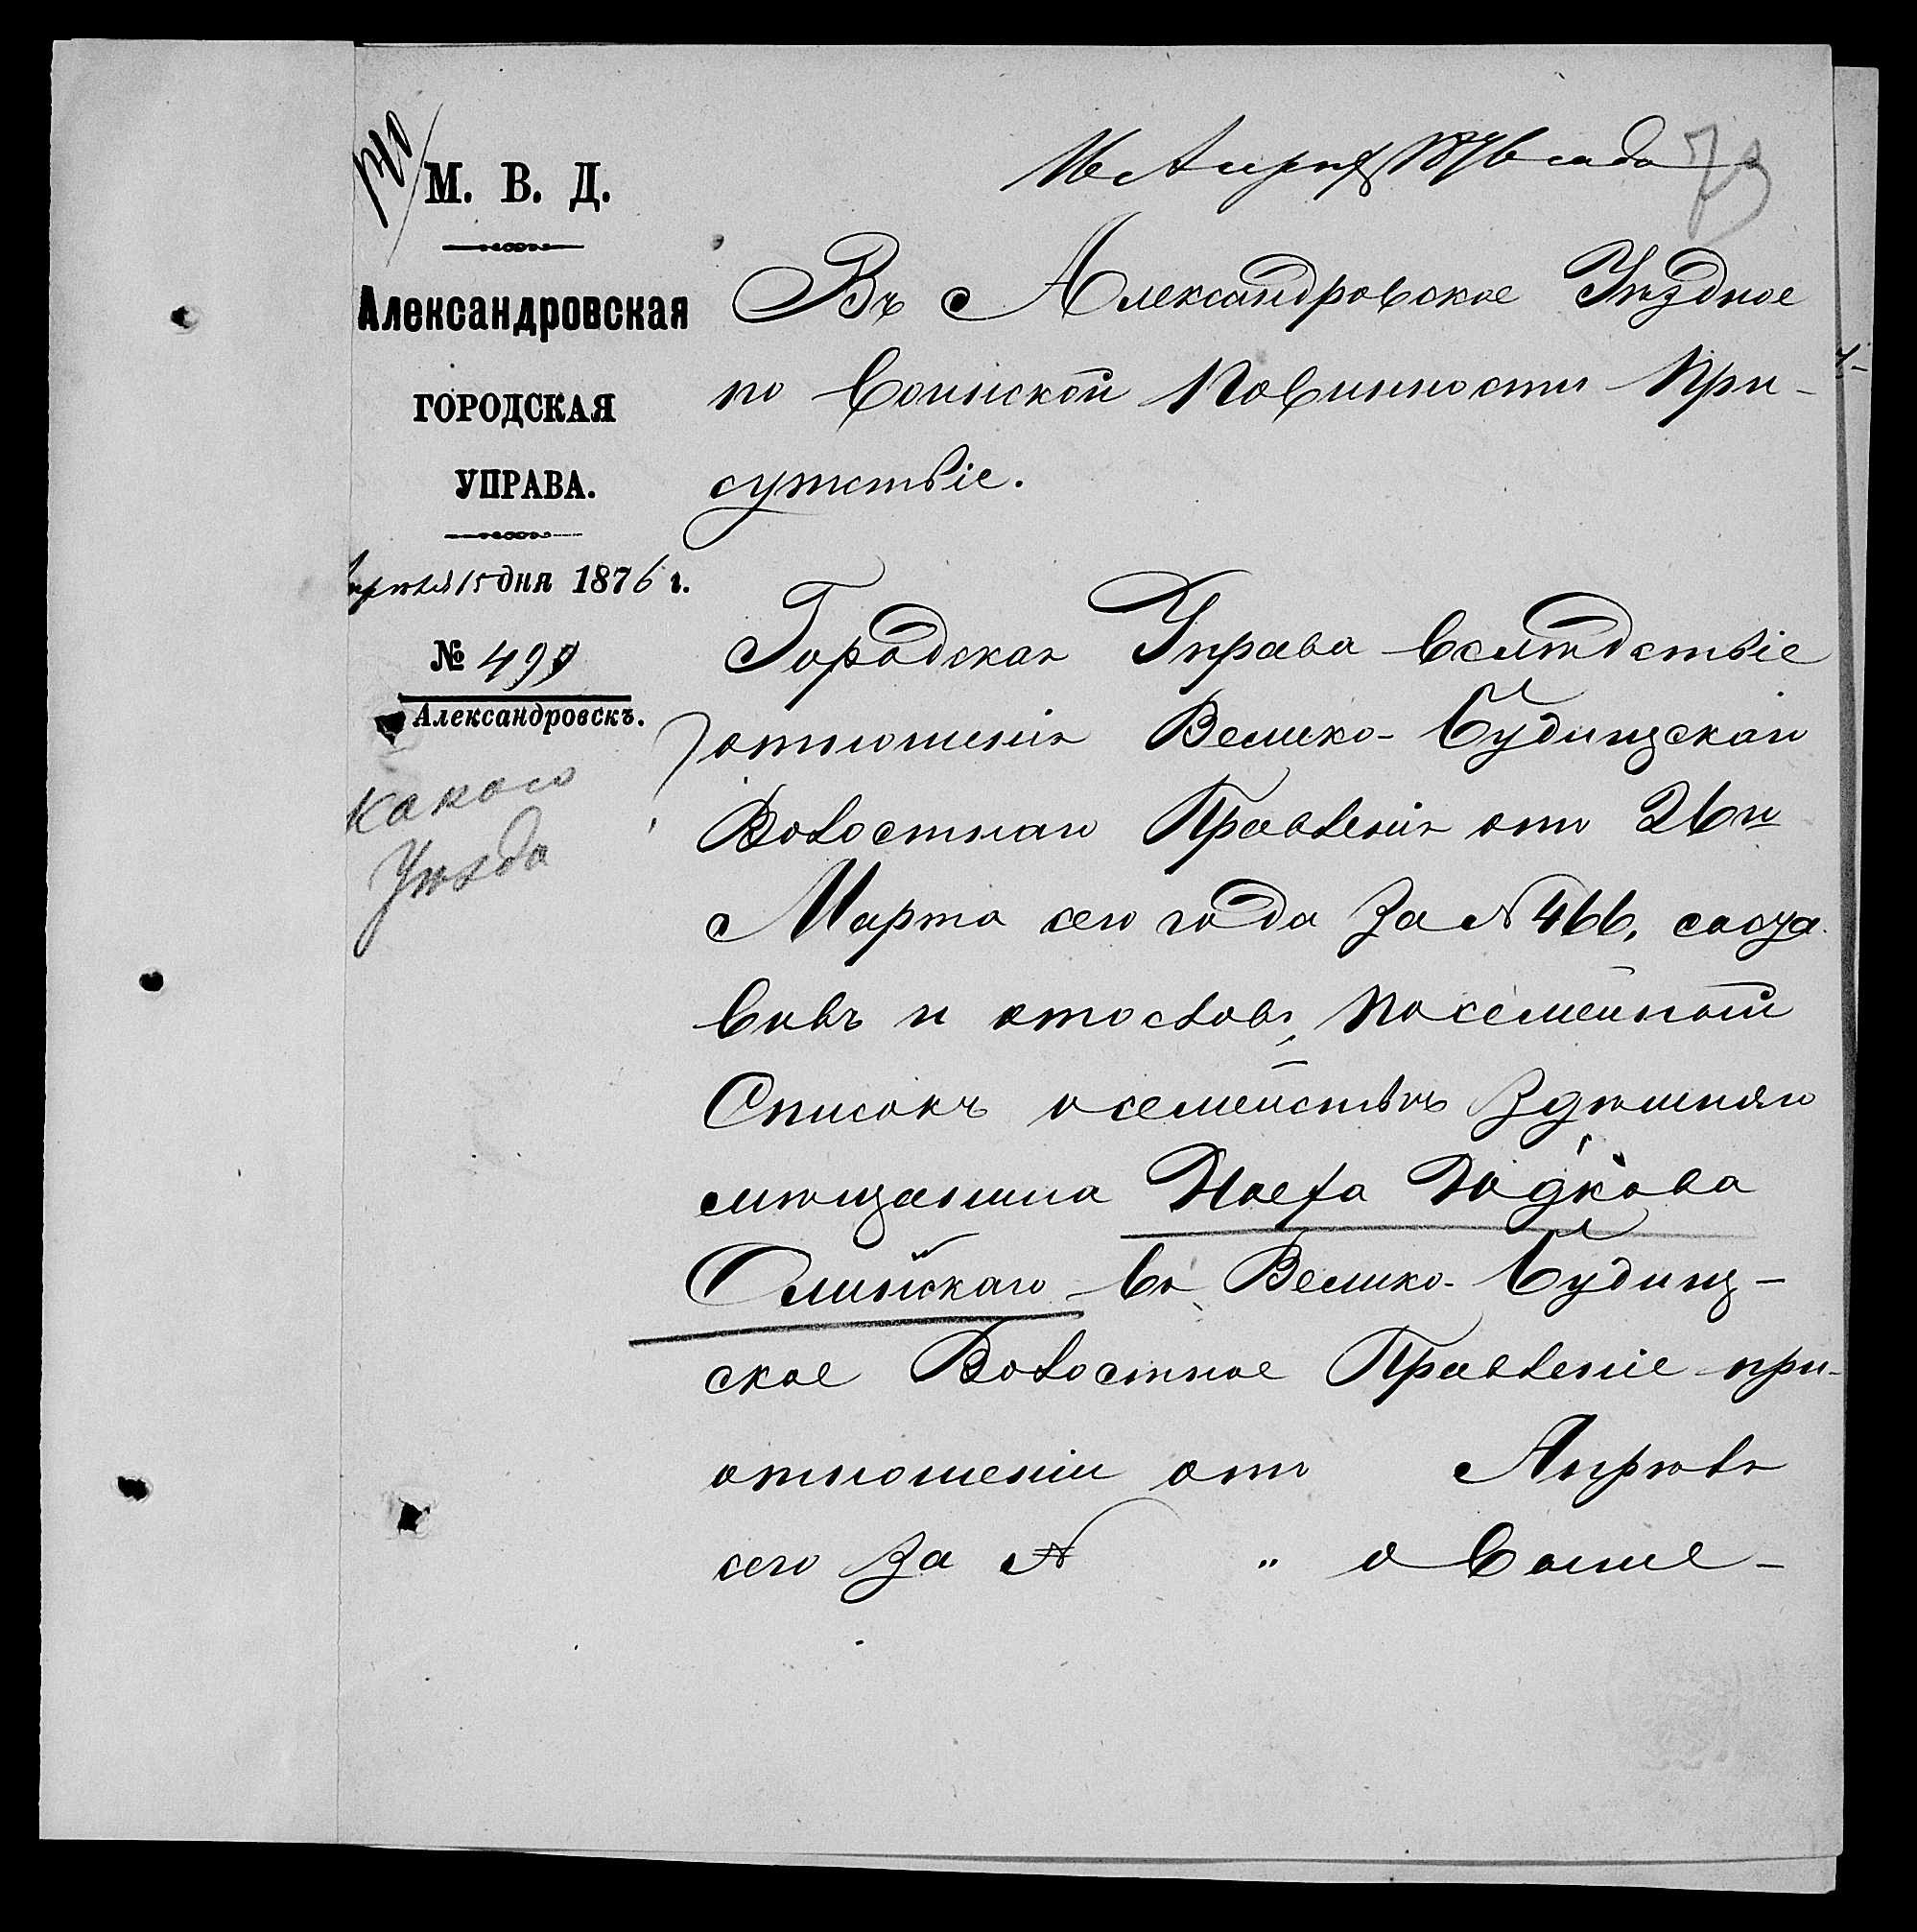 М. В. Д.
Александровская
ГОРОДСКАЯ
УПРАВА.
Апрѣля 15 дня 1876 г.
№ 499
Александровскъ.
Какого
Уѣзда
16 Апрѣл 1876 года
73
Въ Александровское Уѣздное
по воинской Повинности При-
сутствіе.
Городская Управа вслѣдствіе
отношенія Велико-Будищскаго
Волостнаго Правленія отъ 26го
Марта сего года за № 466, соста
вивъ и отославъ посемейный
Списокъ о семействѣ здѣшняго
мѣщанина
Слинскаго въ Велико-Будищ-
ское Волостное Правленіе при
отношеніи отъ Апрѣля
сего за № " о выше-